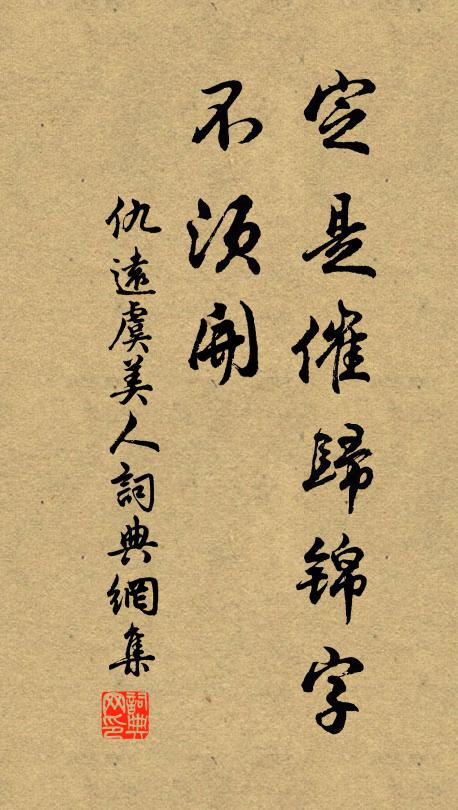 定是催歸錦字
不須開
仇遠虞美人詞典網集
詞典網印